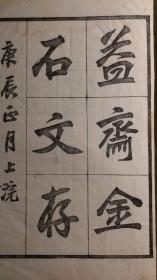 益齋金
石文存
庚辰正月上浣